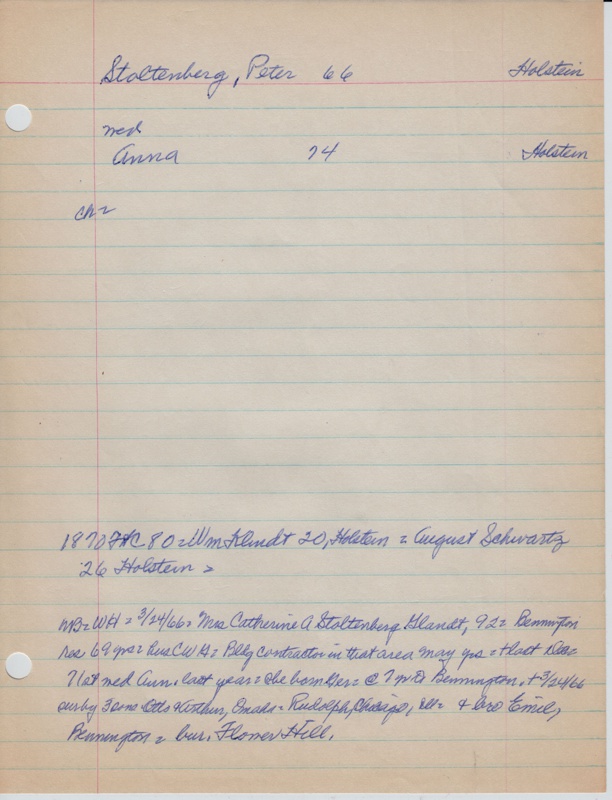 Stoltenberg, Peter 66 Holstein
med
Anna 74 Holstein
ch =
1870 80 = Wm Klindt 20, Holstein = August Schwartz
26 Holstein =
NB = WH = 3/24/66 = Mrs Catherine A Stoltenberg Glandt, 92 = Bennington
res 69 yrs = hus C W G = Bldg contractor in that area many yrs =
71st wed Ann. last year = she born = @ 7 m Bennington, + 3/24/66
sur by 3 sons Otto & Arthur, Omaha = Rudolph, Chicago, Ill = & bro Emil,
Bennington = bur. Flower Hill.